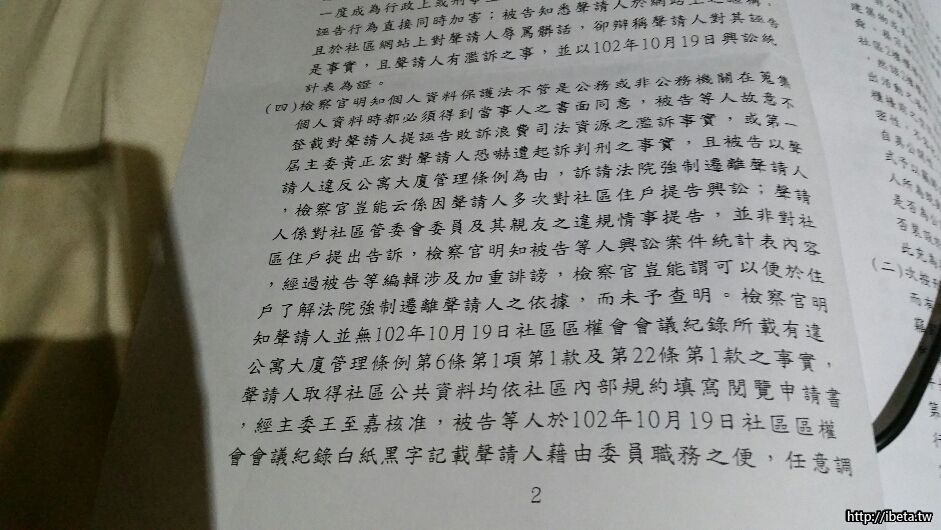 一度成為行政上或刑事上
誣告行為直接同時加害；被告知悉聲請人於網站上之
且於社區網站上對聲請人辱罵髒話，卻辯稱聲請人對其誣告
是事實，且聲請人有濫訴之事，並以102年10月19日興訟統
計表為證。
(四)檢察官明知個人資料保護法不管是公務或非公務機關在蒐集
個人資料時都必須得到當事人之書面同意，被告等人故意不
登載對聲請人提誣告敗訴浪費司法資源之濫訴事實，或第一
屆主委黃正宏對聲請人恐嚇遭起訴判刑之事實，且被告以聲
請人違反公寓大廈管理條例為由，訴請法院強制遷離聲請人
，檢察官豈能云係因聲請人多次對社區住戶提告興訟；聲請
人係對社區管委會委員及其親友之違規情事提告，並非對社
區住戶提出告訴，檢察官明知被告等人興訟案件統計表內容
，經過被告等編輯涉及加重誹謗，檢察官豈能謂可以便於住
戶了解法院強制遷離聲請人之依據，而未予查明。檢察官明
知聲請人並無102年10月19日社區區權會會議紀錄所載有違
公寓大廈管理條例第6條第1項第1款及第22條第1款之事實，
聲請人取得社區公共資料均依社區內部規約填寫閱覽申請書
，經主委王至嘉核准，被告等人於102年10月19日社區區權
會會議紀錄白紙黑字記載聲請人藉由委員職務之便，任意調
2
社區2
出活動
密性，
自異公
式予以
人所為
是否為
否異
此充
(二)次按
而
第
行
http://ibeta.tw